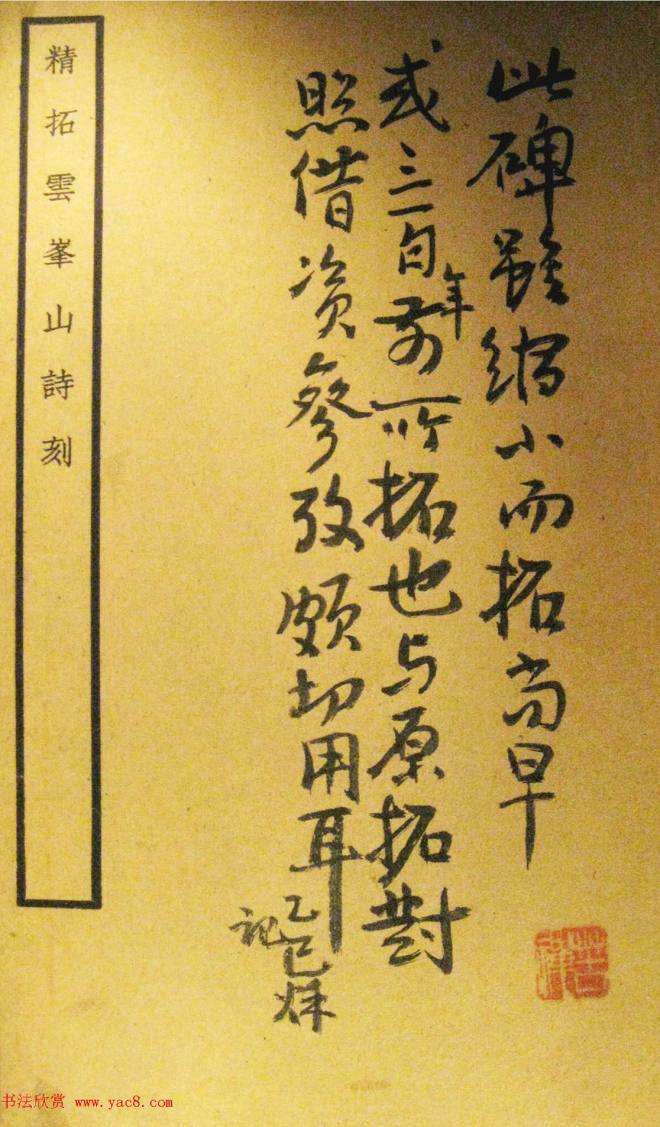 此碑雖缩小而拓尚早
或三百年前所拓也与原拓對
照借资參攷颇切用耳
乙巳秋
記
精拓雲峯山詩刻
书法欣赏 www.yac8.com